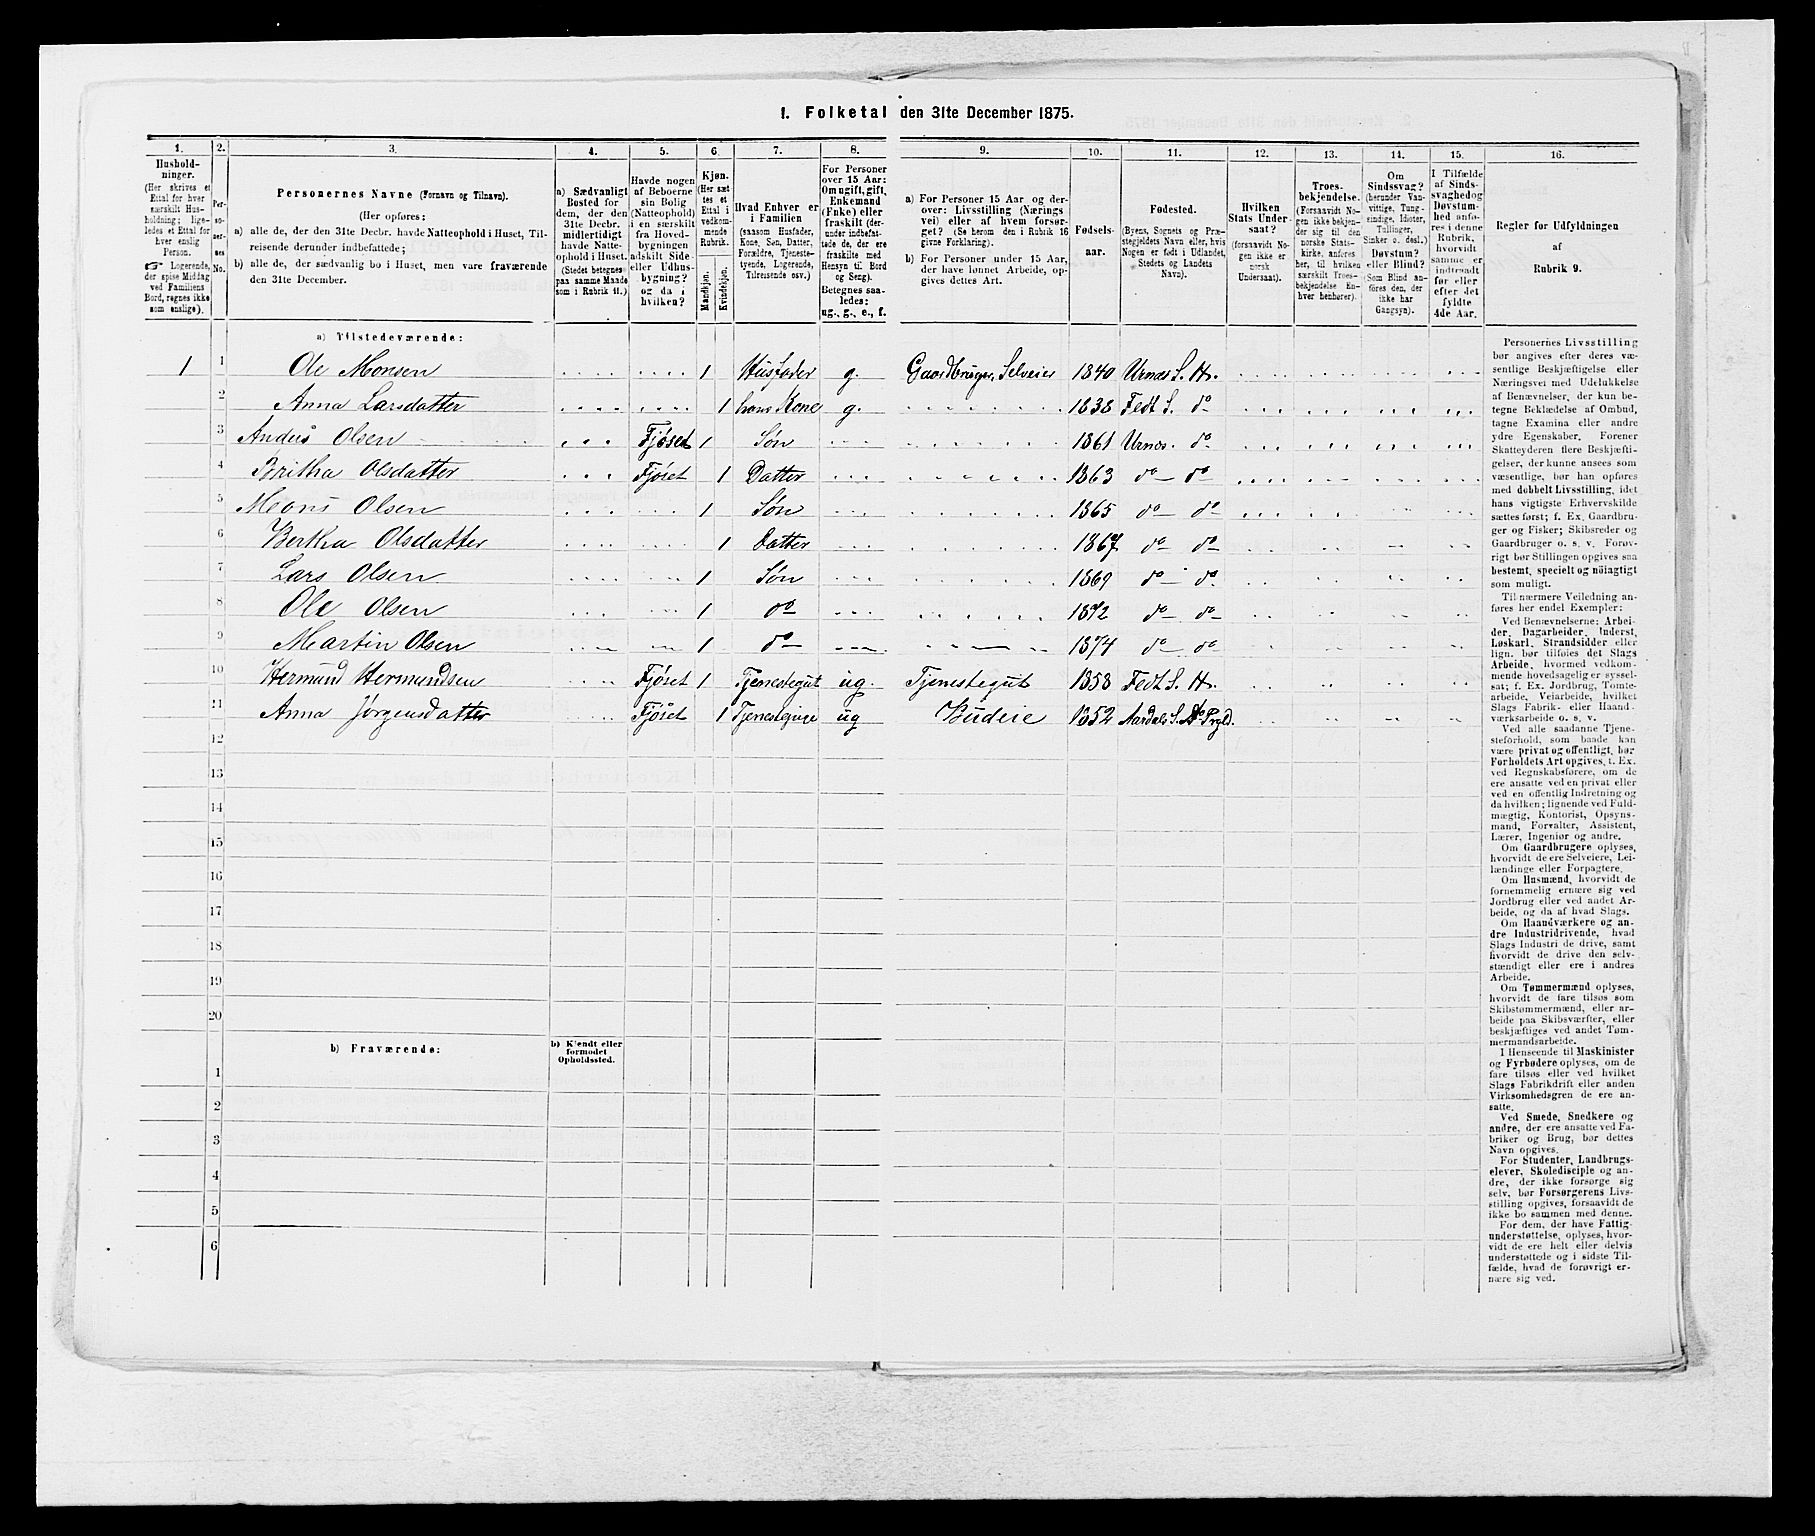 1. Folketal den 31te December 1875.
1. 2. 3. 4. 5. 6 7. 8. 9. 10. 11. 12. 13. 14. 15. 16.
Hushold-
ninger.
(Her skrives et
Ettal for hver
særskilt Hus-
holdning; lige-
ledes et Ettal for
hver enslig
Person.
☞ Logerende,
der spise Middag
ved Familiens
Bord, regnes ikke
som enslige).
Per-
so-
ner-
nes
No.
Personernes Navne (Fornavn og Tilnavn).
(Her opføres:
a) alle de, der den 31te Decbr. havde Natteophold i Huset, Til-
reisende derunder indbefattede;
b) alle de, der sædvanlig bo i Huset, men vare fraværende
den 31te December.
a) Sædvanligt
Bosted for
dem, der den
31te Decbr.
midlertidigt
havde Natte-
ophold i Huset.
(Stedet betegnes
paa samme Maade
som i Rubrik 11.)
Havde nogen
af Beboerne
sin Bolig
(Natteophold)
i en særskilt
fra Hoved-
bygningen
adskilt Side-
eller Udhus-
bygning?
og da i
hvilken?
Kjøn.
(Her sæt
tes et
Ettal i
vedkom-
mende
Rubrik.
Mandkjøn.
Kvindekjøn.
Hvad Enhver er
i Familien
(saasom Husfader,
Kone, Søn, Datter,
Forældre, Tjeneste-
tyende, Logerende,
Tilreisende osv.)
For Personer
over 15 Aar:
Om ugift, gift,
Enkemand
(Enke) eller
fraskilt (der-
under indbefat-
tede de, der ere
fraskilte med
Hensyn til Bord
og Seng).
Betegnes saa-
ledes:
ug., g., e., f.
a) For Personer 15 Aar og der-
over: Livsstilling (Nærings
vei) eller af hvem forsør-
get? (Se herom den i Rubrik 16
givne Forklaring).
b) For Personer under 15 Aar,
der have lønnet Arbeide, op-
gives dettes Art.
Fødsels-
aar.
Fødested.
(Byens, Sognets og Præ-
stegjeldets Navn eller, hvis
Nogen er født i Udlandet,
Stedets og Landets
Navn).
Hvilken
Stats Under-
saat?
(forsaavidt No-
gen ikke er
norsk
Undersaat).
Troes-
bekjendelse.
(Forsaavidt No-
gen ikke bekjen-
der sig til den
norske Stats-
kirke, anføres
her, til hvilken
særskilt Troes-
bekjendelse En-
hver henhører).
Om
Sindssvag?
(herunder Van-
vittige, Tung-
sindige, Idioter,
Tullinger,
Sinker o. desl.)
Døvstum?
eller Blind?
(Som Blind an-
føres den, der
ikke har
Gangsyn).
I Tilfælde
af Sinds-
svaghedog
Døvstum-
hed anfø-
res i denne
Rubrik,
hvorvidt
samme er
indtraadt
før eller
efter det
fyldte
4de Aar.
Regler for Udfyldningen
af
Rubrik 9.
a) Tilstedeværende:
1 1 Ole Monsen 1 Husfader g. Gaardbruger, Selveier 1840 Urnæs S. H.
2 Anna Larsdatter 1 hans Kone g. 1838 Fedt S. do
3 Anders Olsen Fjøset 1 Søn 1861 Urnæs. do
4 Britha Olsdatter Fjøset 1 Datter 1863 do do
5 Mons Olsen 1 Søn 1865 do do
6 Bertha Olsdatter 1 Datter 1867 do do
7 Lars Olsen 1 Søn 1869 do do
8 Ole Olsen 1 do 1872 do do
9 Martin Olsen 1 do 1874 do do
10 Hermund Hermundsen Fjøset 1 Tjenestegut ug. Tjenestegut 1858 Fedt S. H.
11 Anna Jørgensdatter Fjøset 1 Tjenestepige ug Budeie 1852 Aardals S. do Prgld.
12
13
14
15
16
17
18
19
20
b) Fraværende:
b) Kjendt eller
formodet
Opholdssted.
1
2
3
4
5
6
Personernes Livsstilling
bør angives efter deres væ-
sentlige Beskjæftigelse eller
Næringsvei med Udelukkelse
af Benævnelser, der kun be-
tegne Beklædelse af Ombud,
tagne Examina eller andre
ydre Egenskaber. Forener
Skatteyderen flere Beskjæfti-
gelser, der kunne ansees som
væsentlige, bør han opføres
med dobbelt Livsstilling, idet
hans vigtigste Erhvervskilde
sættes først; f. Ex. Gaardbru-
ger og Fisker; Skibsreder og
Gaardbruger o. s. v. Forøv-
rigt bør Stillingen opgives saa
bestemt, specielt og nöiagtigt
som muligt.
Til nærmere Veiledning an-
føres her endel Exempler:
Ved Benævnelserne: Arbei-
der, Dagarbeider, Inderst,
Løskarl, Strandsidder eller
lign. bør tilføies det Slags
Arbeide, hvormed vedkom-
mende hovedsagelig er syssel-
sat; f. Ex. Jordbrug, Tomte-
arbeide, Veiarbeide, hvilket
Slags Fabrik- eller Haand-
værksarbeide o. s. v.
Ved alle saadanne Tjene-
steforhold, som baade kan
være privat og offentligt, bør
Forholdets Art opgives, t. Ex.
ved Regnskabsførere, om de
ere ansatte ved en privat eller
ved en offentlig Indretning og
da hvilken; lignende ved Fuld-
mægtig, Kontorist, Opsyns-
mand, Forvalter, Assistent,
Lærer, Ingeniør og andre.
Om Gaardbrugere oplyses,
hvorvidt de ere Selveiere, Lei-
lændinge eller Forpagtere.
Om Husmænd, hvorvidt de
fornemmelig ernære sig ved
Jordbrug eller ved andet Ar-
beide, og da af hvad Slags.
Om Haandværkere og an-
dre Industridrivende, hvad
Slags Industri de drive, samt
hvorvidt de drive den selv-
stændigt eller ere i andres
Arbeide.
Om Tømmermænd oplyses,
hvorvidt de fare tilsøs som
Skibstømmermænd, eller ar-
beide paa Skibsværfter, eller
beskjæftiges ved andet Tøm-
mermandsarbeide.
I Henseende til Maskinister
og Fyrbødere oplyses, om de
fare tilsøs eller ved hvilket
Slags Fabrikdrift eller anden
Virksomhedsgren de ere an-
satte.
Ved Smede, Snedkere og
andre, der ere ansatte ved Fa-
briker og Brug, bør dettes
Navn opgives.
For Studenter, Landbrugs-
elever, Skoledisciple og an-
dre, der ikke forsørge sig
selv, bør Forsørgerens Livs-
stilling opgives, forsaavidt de
ikke bo sammen med denne.
For dem, der have Fattig-
understøttelse, oplyses, hvor-
vidt de ere helt eller delvis
understøttede og i sidste Til-
fælde, hvad de forøvrigt er-
nære sig ved.